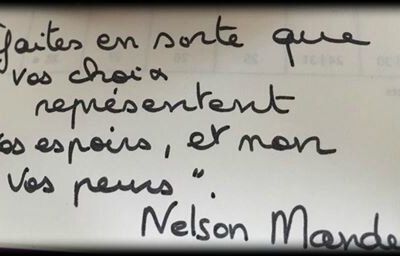 faites en sorte que
vos choix
représentent
os espoirs, et non
vos peurs".
Nelson Mande